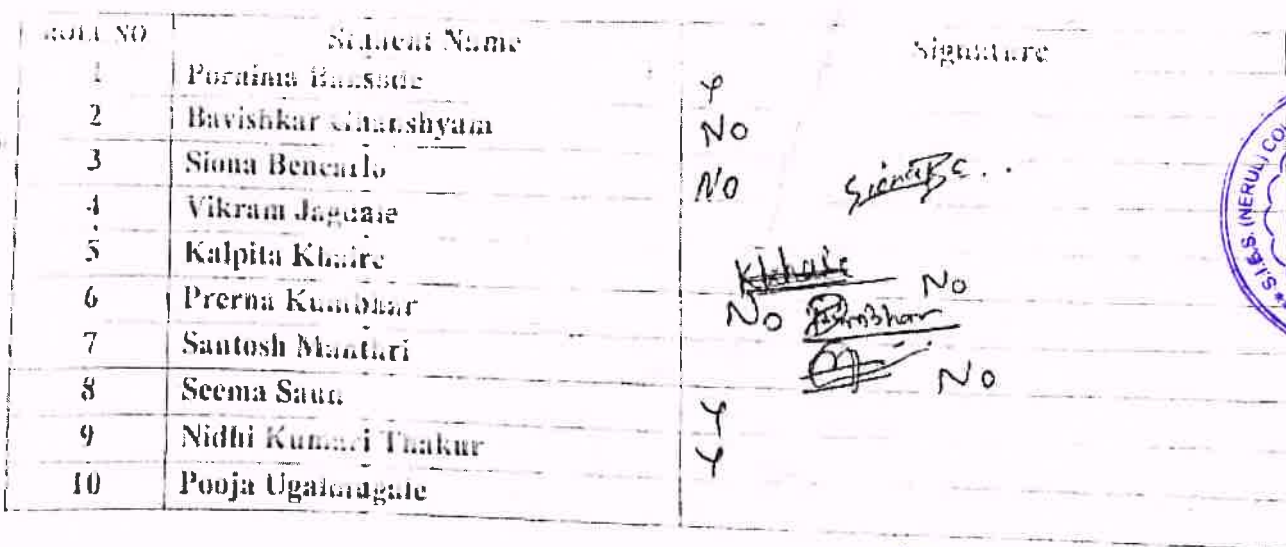 ROLL NO Student Name Signature
1 Pornima Bansode Y
2 Bavishkar Ghanshyam No
3 Siona Bencarlo No
4 Vikram Jagdale
5 Kalpita Khaire KKhaire No
6 Prerna Kumbhar No PKumbhar
7 Santosh Manthri No
8 Seema Saun Y
9 Nidhi Kumari Thakur Y
10 Pooja Ugalmugale
S.I.E.S. (NERUL) CO